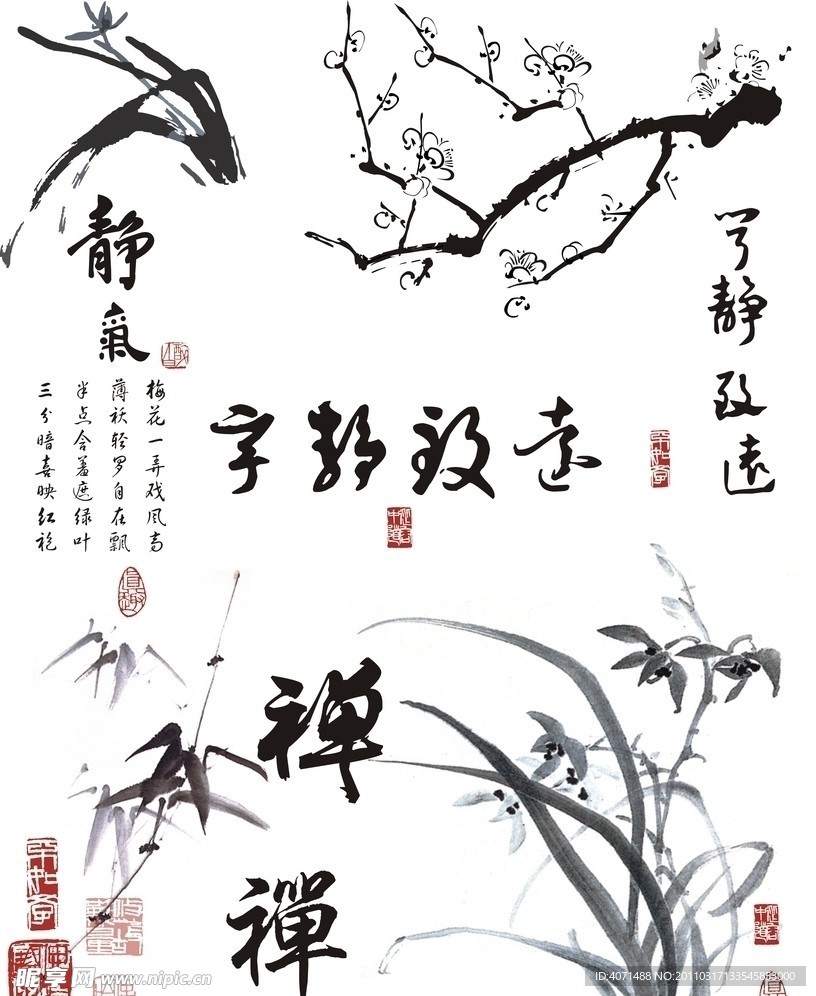 静氣
梅花一弄戏风高
薄袄轻罗自在飘
半点含羞遮绿叶
三分暗喜映红袍
宁静致远
宁静致远
禅
禪
昵享网 www.nipic.cn
ID:4071488 NO:20110317133545853000